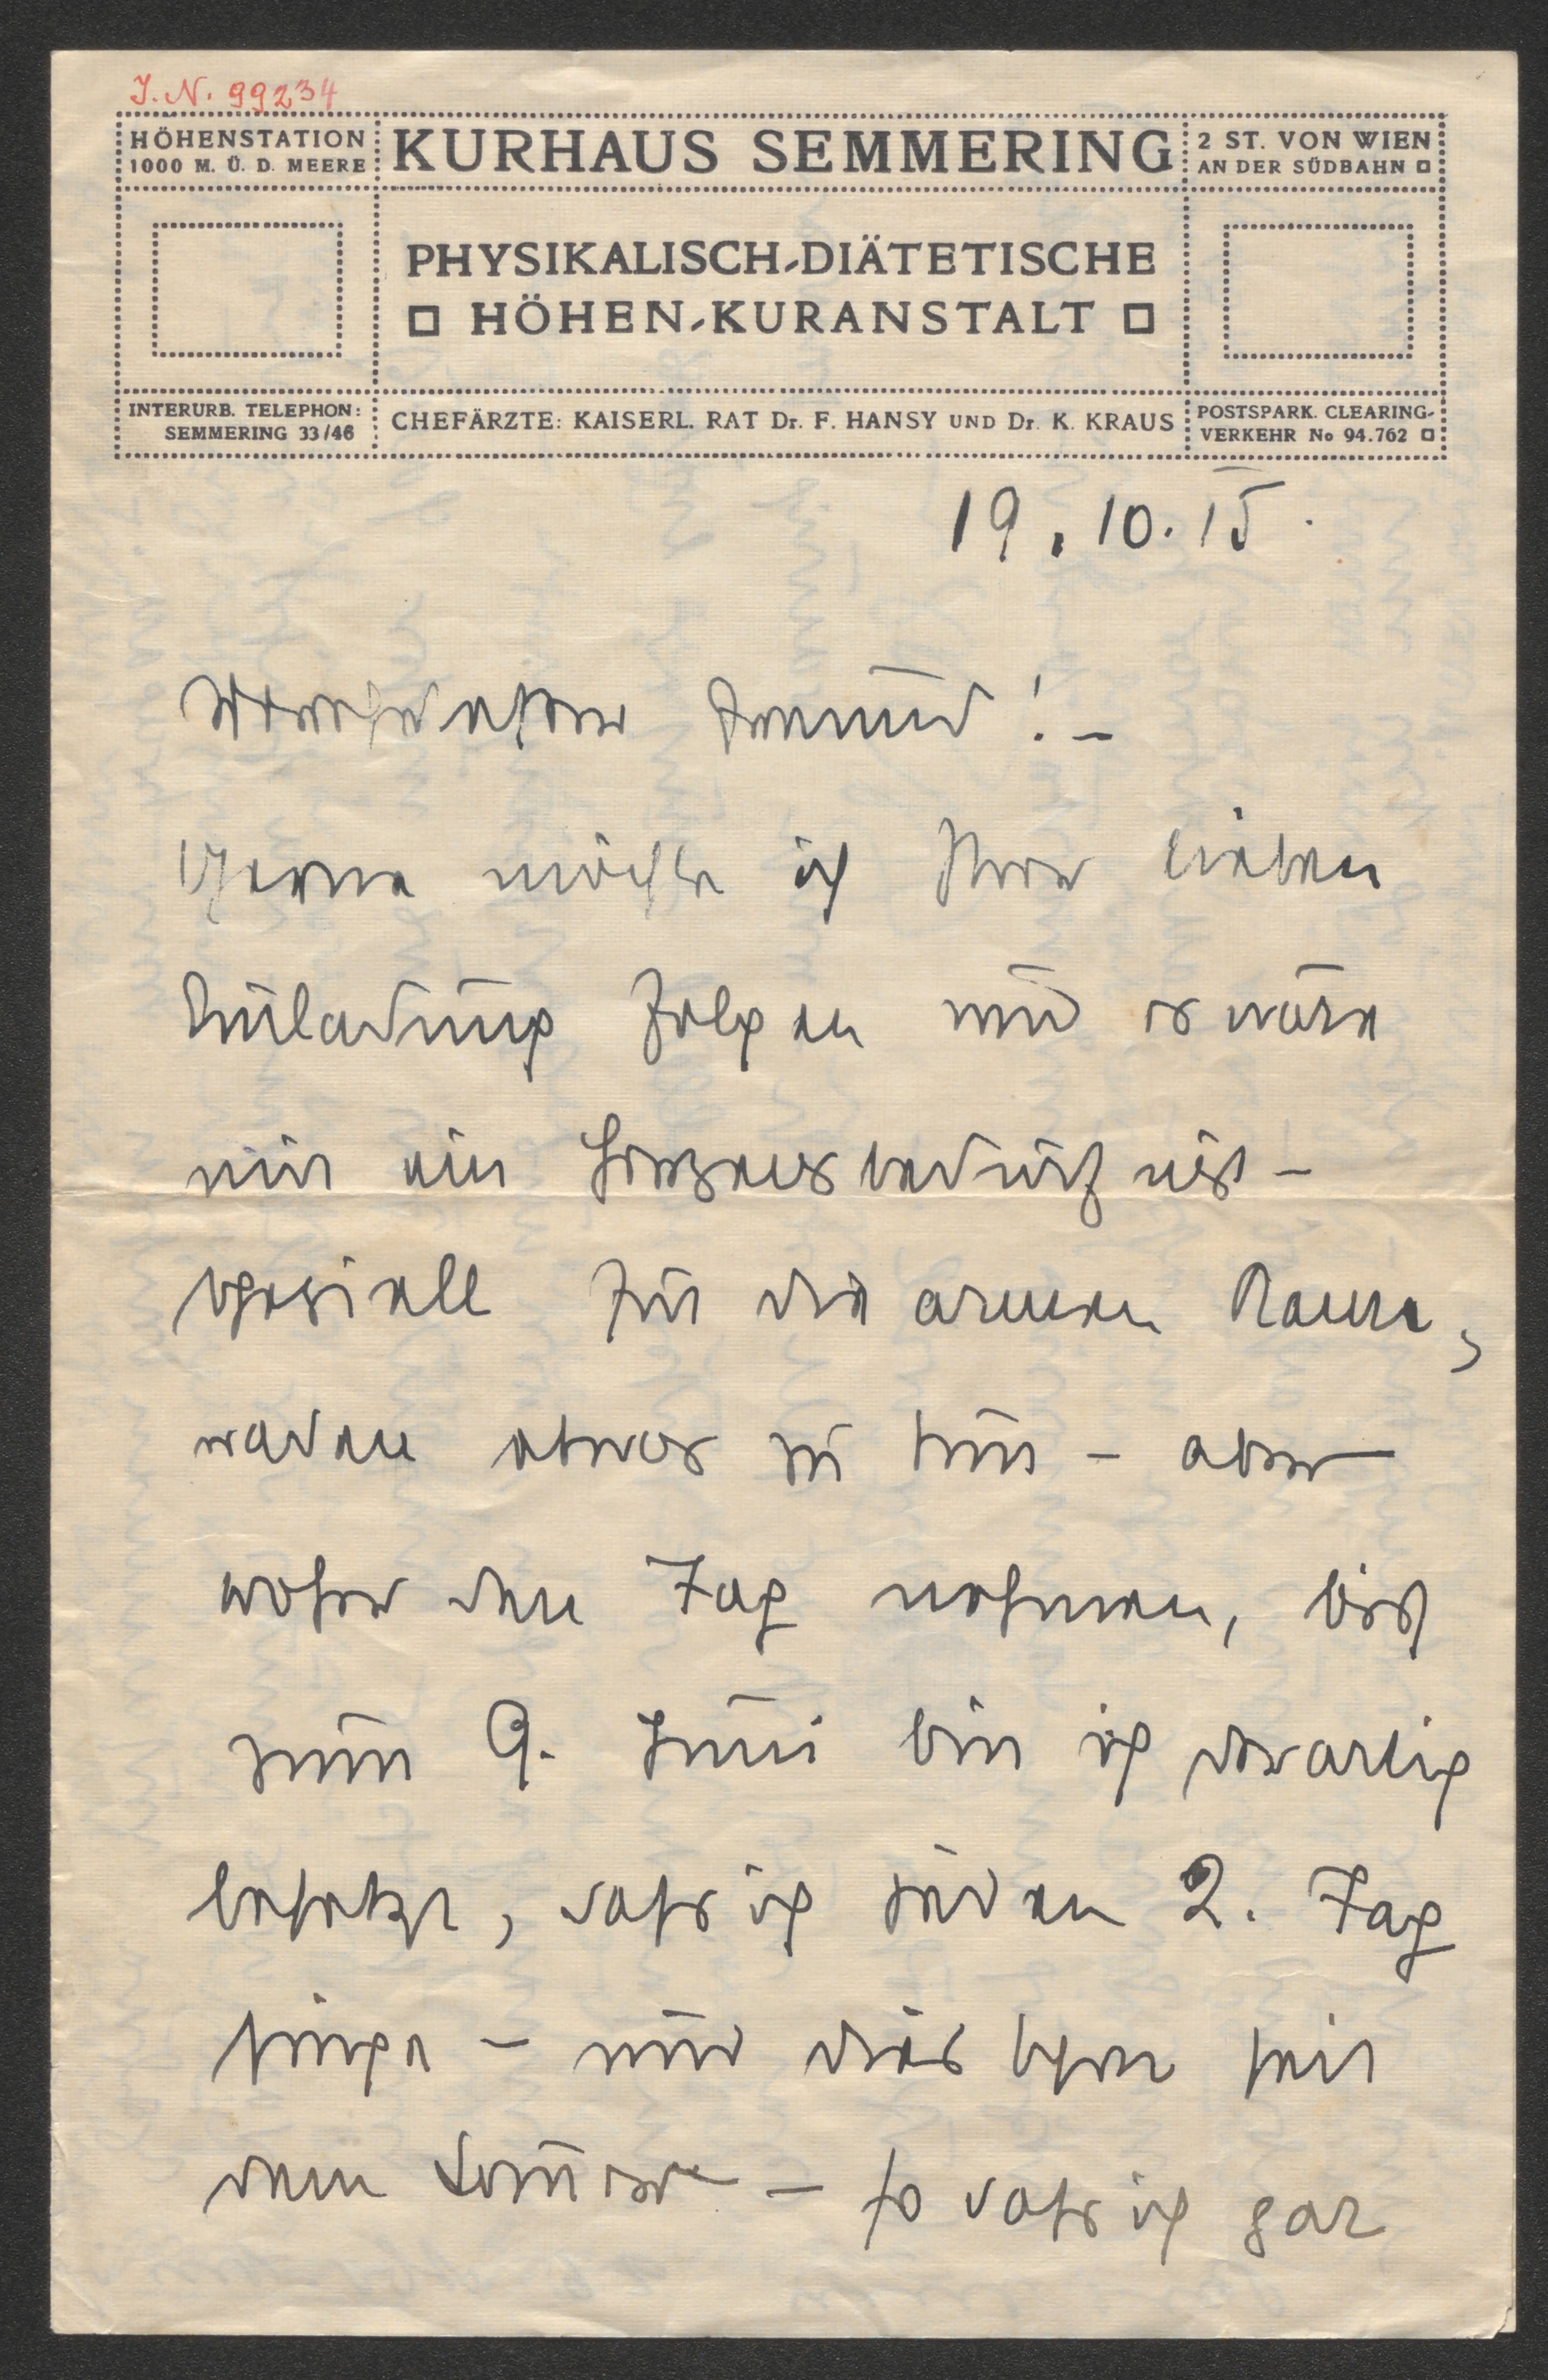 J. N. 99234
HÖHENSTATION
1000 M. Ü. D. MEERE
KURHAUS SEMMERING
2 ST. VON WIEN
AN DER SÜDBAHN
PHYSIKALISCH-DIÄTETISCHE
HÖHEN-KURANSTALT
INTERURB. TELEPHON:
SEMMERING 33/46
CHEFÄRZTE: KAISERL. RAT Dr. F. HANSY UND Dr. K. KRAUS
POSTSPARK. CLEARING-
VERKEHR No 94.762
19. 10. 15.
Verehrtester Freund! –
Gerne möchte ich Ihrer lieben
Einladung folgen und es wäre
mir ein Herzensbedürfnis –
speziell für die armen Kame,
raden etwas zu tun – aber
woher den Tag nehmen, bis
zum 9. Juni bin ich derartig
besetzt, dass ich jeden 2. Tag
singe – und dies schon seit
dem – so dass ich gar